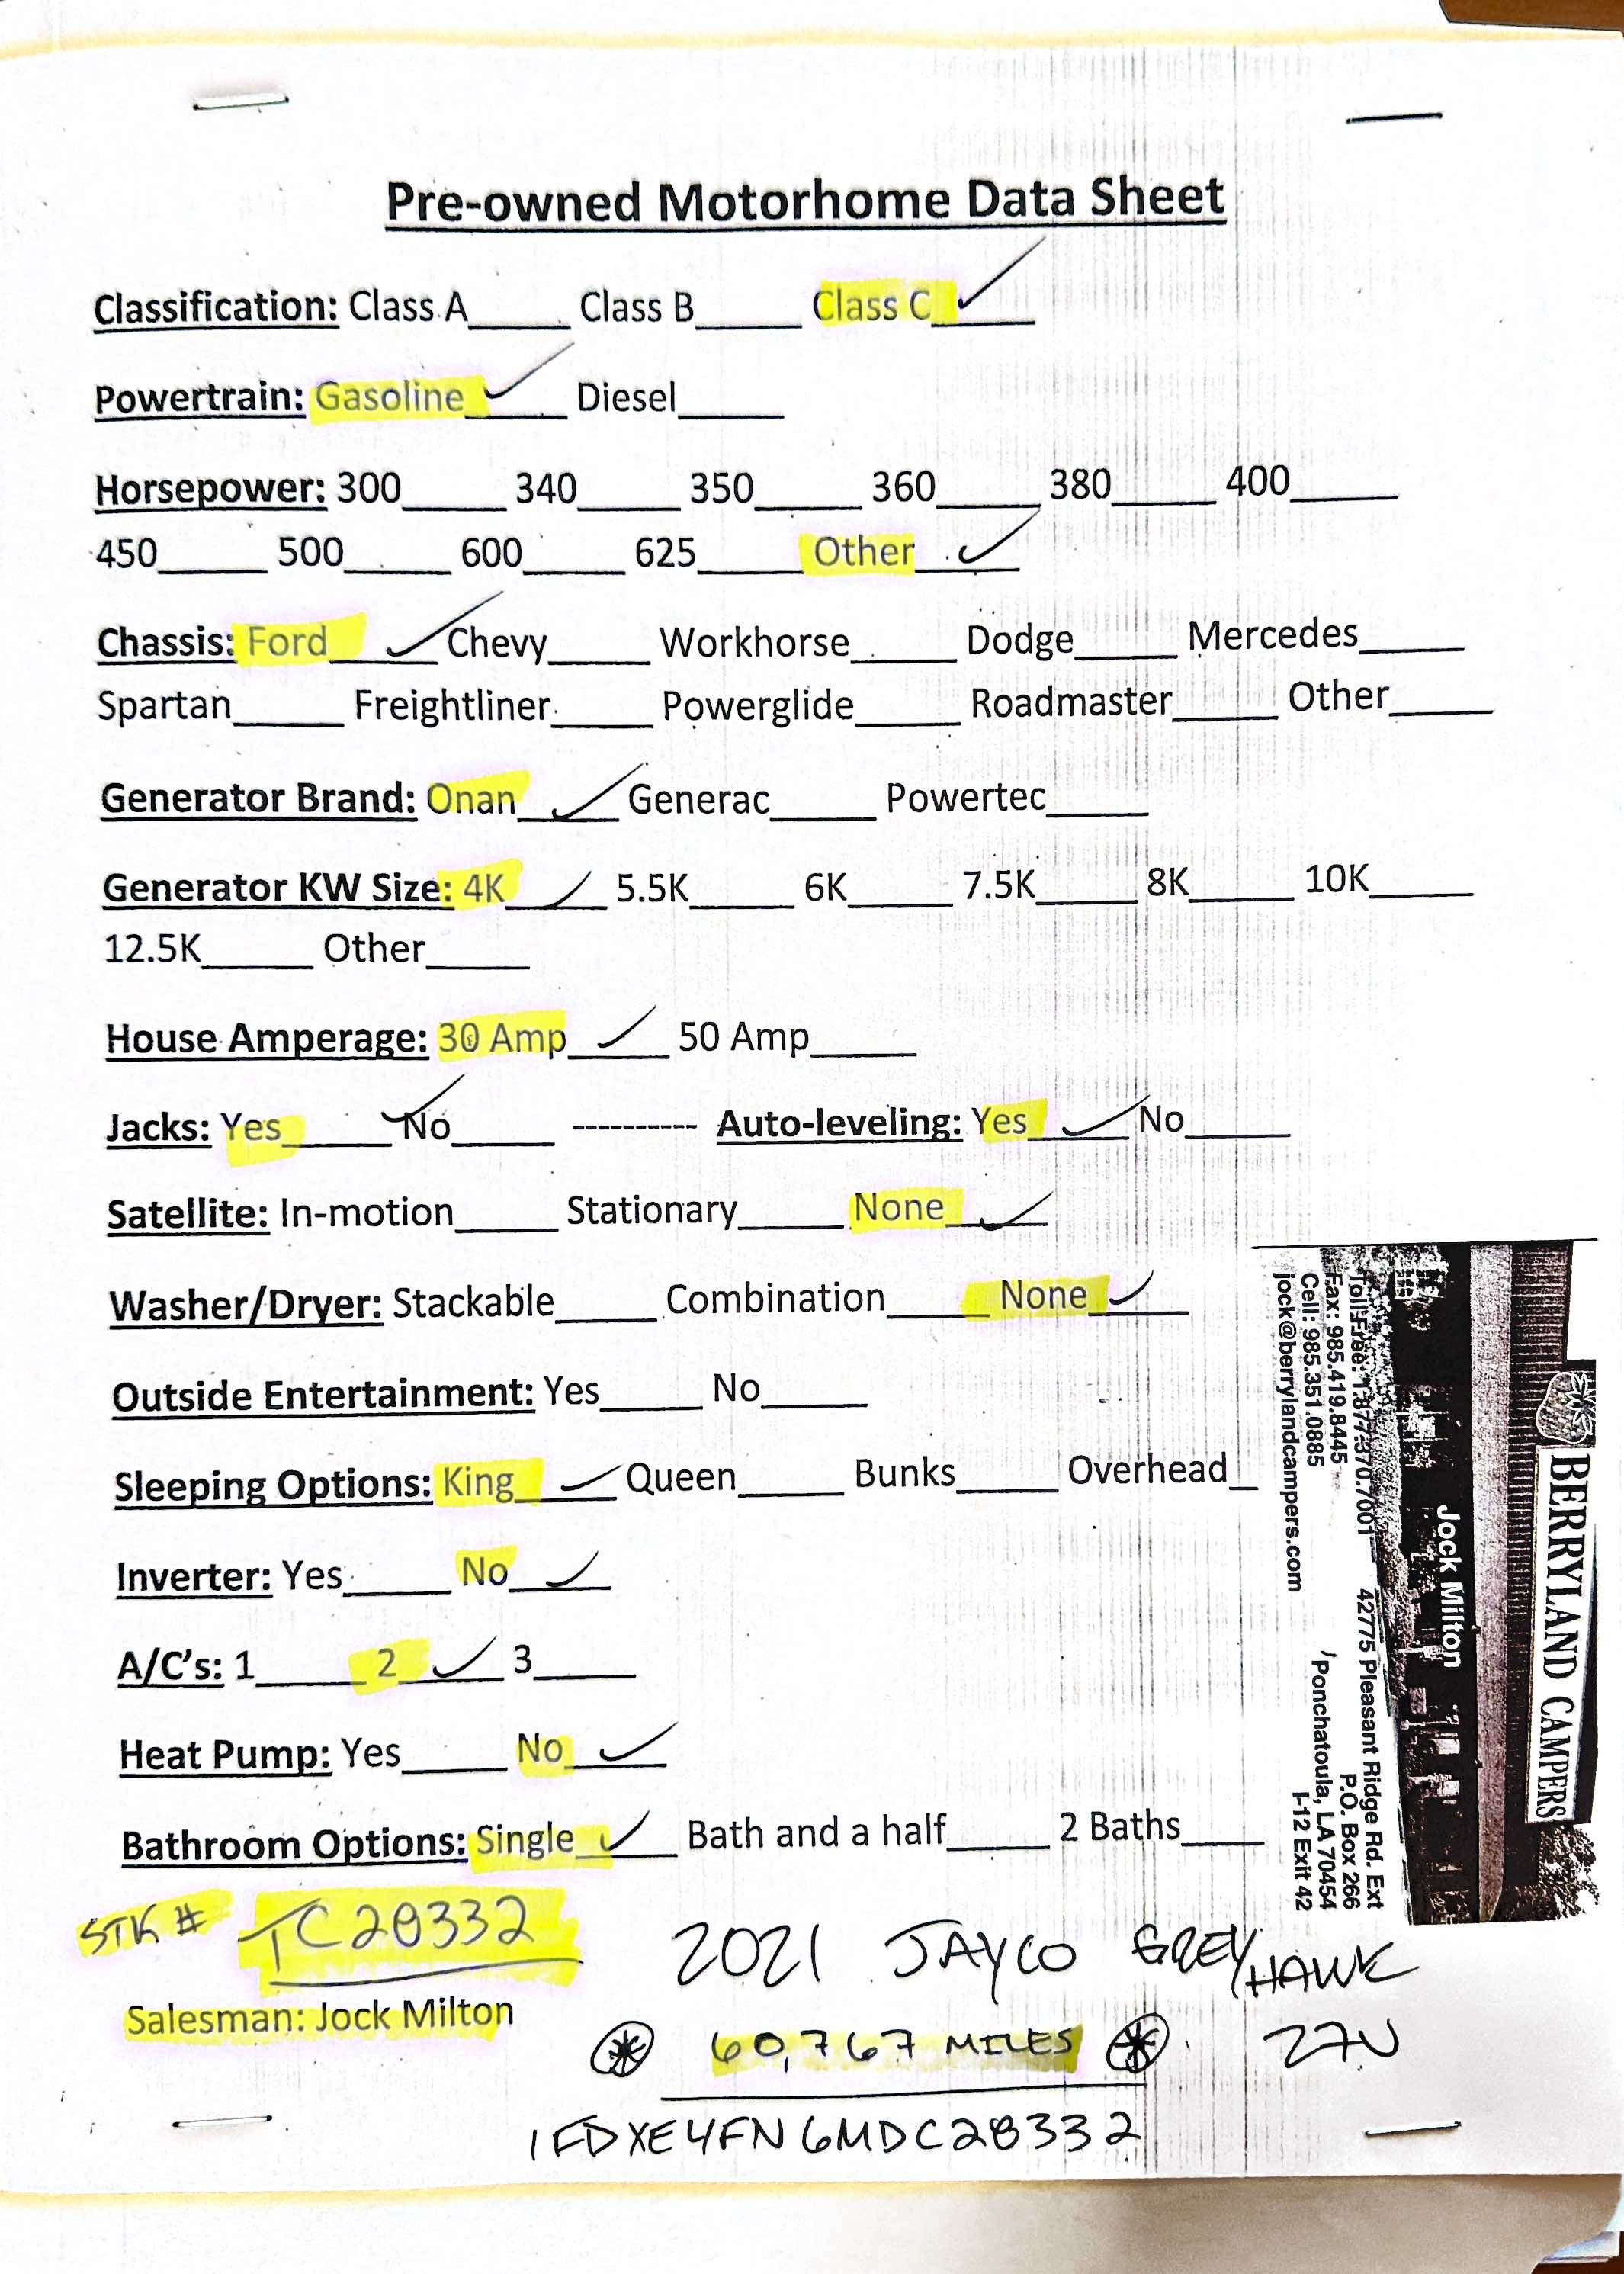 Pre-owned Motorhome Data Sheet
Classification: Class A_____ Class B_____ Class C__✓__
Powertrain: Gasoline__✓__ Diesel_____
Horsepower: 300_____ 340_____ 350_____ 360_____ 380_____ 400_____
450_____ 500_____ 600_____ 625_____ Other__✓__
Chassis: Ford__✓__ Chevy_____ Workhorse_____ Dodge_____ Mercedes_____
Spartan_____ Freightliner_____ Powerglide_____ Roadmaster_____ Other_____
Generator Brand: Onan__✓__ Generac_____ Powertec_____
Generator KW Size: 4K__✓__ 5.5K_____ 6K_____ 7.5K_____ 8K_____ 10K_____
12.5K_____ Other_____
House Amperage: 30 Amp__✓__ 50 Amp_____
Jacks: Yes_____✓ No_____ ---------- Auto-leveling: Yes__✓__ No_____
Satellite: In-motion_____ Stationary_____ None__✓__
Washer/Dryer: Stackable_____ Combination_____ None__✓__
Outside Entertainment: Yes_____ No_____
Sleeping Options: King__✓__ Queen_____ Bunks_____ Overhead_
Inverter: Yes_____ No__✓__
A/C's: 1_____ 2__✓__ 3_____
Heat Pump: Yes_____ No__✓__
Bathroom Options: Single__✓__ Bath and a half_____ 2 Baths____
BERRYLAND CAMPERS
Jock Milton
Toll Free: 1.877.370.7001
Fax: 985.419.8445
Cell: 985.351.0885
jock@berrylandcampers.com
42775 Pleasant Ridge Rd. Ext
P.O. Box 266
Ponchatoula, LA 70454
I-12 Exit 42
STK # TC28332
2021 JAYCO GREYHAWK
27U
Salesman: Jock Milton
60,767 MILES
1FDXE4FN6MDC28332